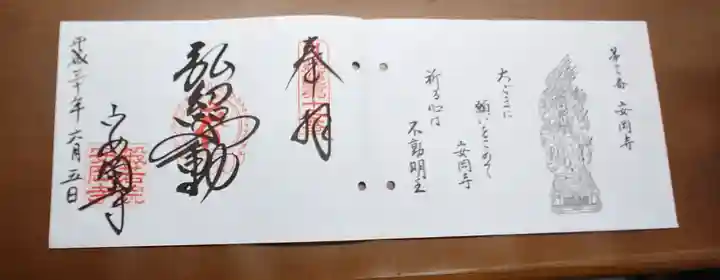 第三番 安岡寺
大ぞらに
願いをこめて
安岡寺
祈る心は
不動明王
奉拝
弘紹不動
安岡寺
平成三十年六月五日